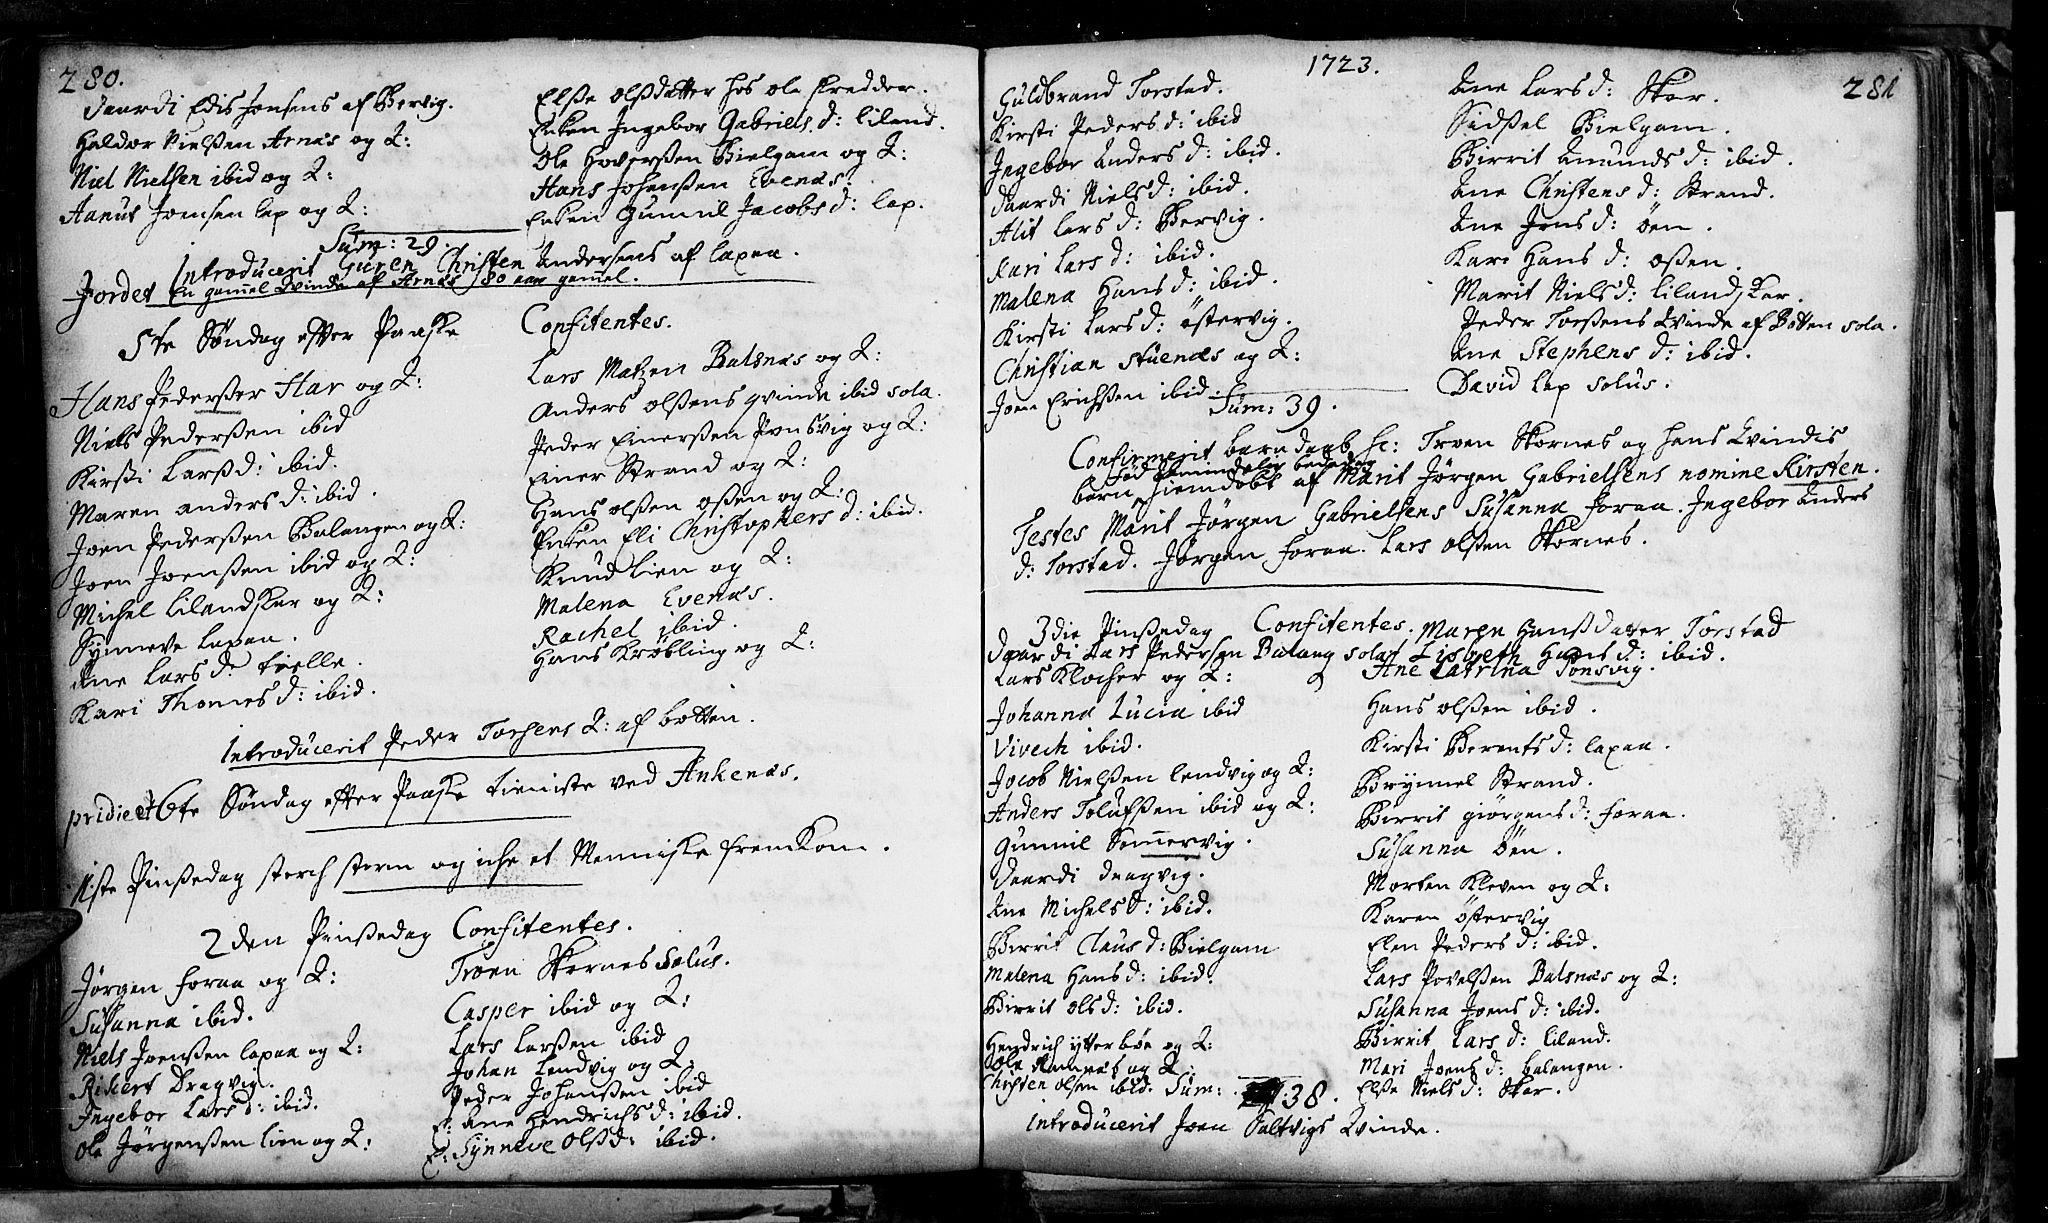 280.
Daardi Edis Jensens af Bervig.
Haldor Nielßen Arnæs og Q:
Niel Nielsen ibid og Q:
Aanut Jonsen lap og Q:
Elße Olßdatter hos ole skredder.
Enken Ingebor Gabriels d: liland.
Ole Hoverßen Bielgam og Q:
Hans Johanßen Evenæs.
Enken Gunnil Jacobs d: lap.
Sum: 29.
Introducerit Guren Christen Andersens af lapaa.
Jordet En gam̄el Qvinde af Arnæs 80 aar gam̄el.
5te Søndag efter Paaske
Confitentes.
Hans Pederßer Har og Q:
Niels Pederßen ibid
Kirsti Larß d: ibid.
Maren anders d: ibid.
Joen Pederßen Balangen og Q:
Joen Joenßen ibid og Q:
Michel Lilandskar og Q:
Synneve Lapaa.
Ane Lars d: tielle.
Kari Thomes d: ibid.
Lars Matzen Balsnæs og Q:
Anders olßens qvinde ibid sola.
Peder Einerßen Ponsvig og Q:
Einer Strand og Q:
Hans olßen oßen og Q:
Enken Eli Christophers d: ibid.
Knud Lien og Q:
Malena Evenæs.
Rachel ibid.
Hans Krøbling og Q:
Introducerit Peder Torsens Q: af botten.
pridie et 6te Søndag efter Paaske tieniste ved Ankenæs.
1ste Pinßedag sterch storm og iche et Menniske fremkom.
2den Pinßedag Confitentes.
Jørgen foraa og Q:
Susanna ibid.
Niels Joenßen lapaa og Q:
Rickert Dragvig.
Ingebor Lars d: ibid.
Ole Jørgenßen lien og Q:
Troen Skornes Solus.
Casper ibid og Q:
Lars Larßen ibid
Johan Lendvig og Q:
Peder Johanßen ibid
E: Ane Hendrichs d: ibid.
E: Synneve Olß d: ibid.
1723.
281
Guldbrand Torstad.
Kirsti Peders d: ibid
Ingebor Anders d: ibid.
Daardi Niels d: ibid.
Alit Lars d: Bervig.
Kari Lars d: ibid.
Malena Hans d: ibid.
Kirsti Lars d: östervig.
Christian Stuenæs og Q:
Joen Erichßen ibid.
Ane Lars d: Skar.
Sidßel Bielgam.
Birrit Amunds d: ibid.
Ane Christens d: Strand.
Ane Jens d: öen.
Kari Hans d: oßen.
Marit Niels d: Lilandskar.
Peder Torßens Qvinde af Botten sola.
Ane Stephens d: ibid.
David lap solus.
Sum: 39.
Confirmerit barn daab sc: Troen Skornes og hans Qvindis
barn hiemdøbt af Marit Jörgen Gabrielsens nomine Kirsten.
Testes Marit Jörgen Gabrielsens Susanna foraa. Ingebor Anders
d: Torstad. Jörgen foraa. Lars Olßen Skornes.
3die Pinßedag Confitentes.
Maren Hansdatter Torstad
Daardi Lars Pedersen Balang sola. Lisbeth Hans d: ibid.
Lars Klocher og Q:
Johanna Lucia ibid
Vivech ibid.
Jacob Nielßen lendvig og Q:
Anders Tolufßen ibid og Q:
Gunnil Sem̄ervig.
Daardi Dragvig.
Ane Michels d: ibid.
Birrit Claus d: Bielgam
Malena Hans d: ibid.
Birrit Ols d: ibid.
Hendrich ytterböe og Q:
Ole Ramnæs og Q:
Christen Olsen ibid. Sum: 38.
Ane Catrina Ponsvig.
Hans Olßen ibid.
Kirsti Berents d: lapaa.
Brynnel Strand.
Birrit giörgens d: foraa.
Susanna öen.
Morten Kleven og Q:
Karen östervig
Elen Peders d: ibid.
Lars Povelßen Balsnæs og Q:
Susanna Joens d: ibid.
Birrit Lars d: liland.
Mari Joens d: balangen.
Elße Niels d: Skar.
introducerit Joen Saltvigs Qvinde.